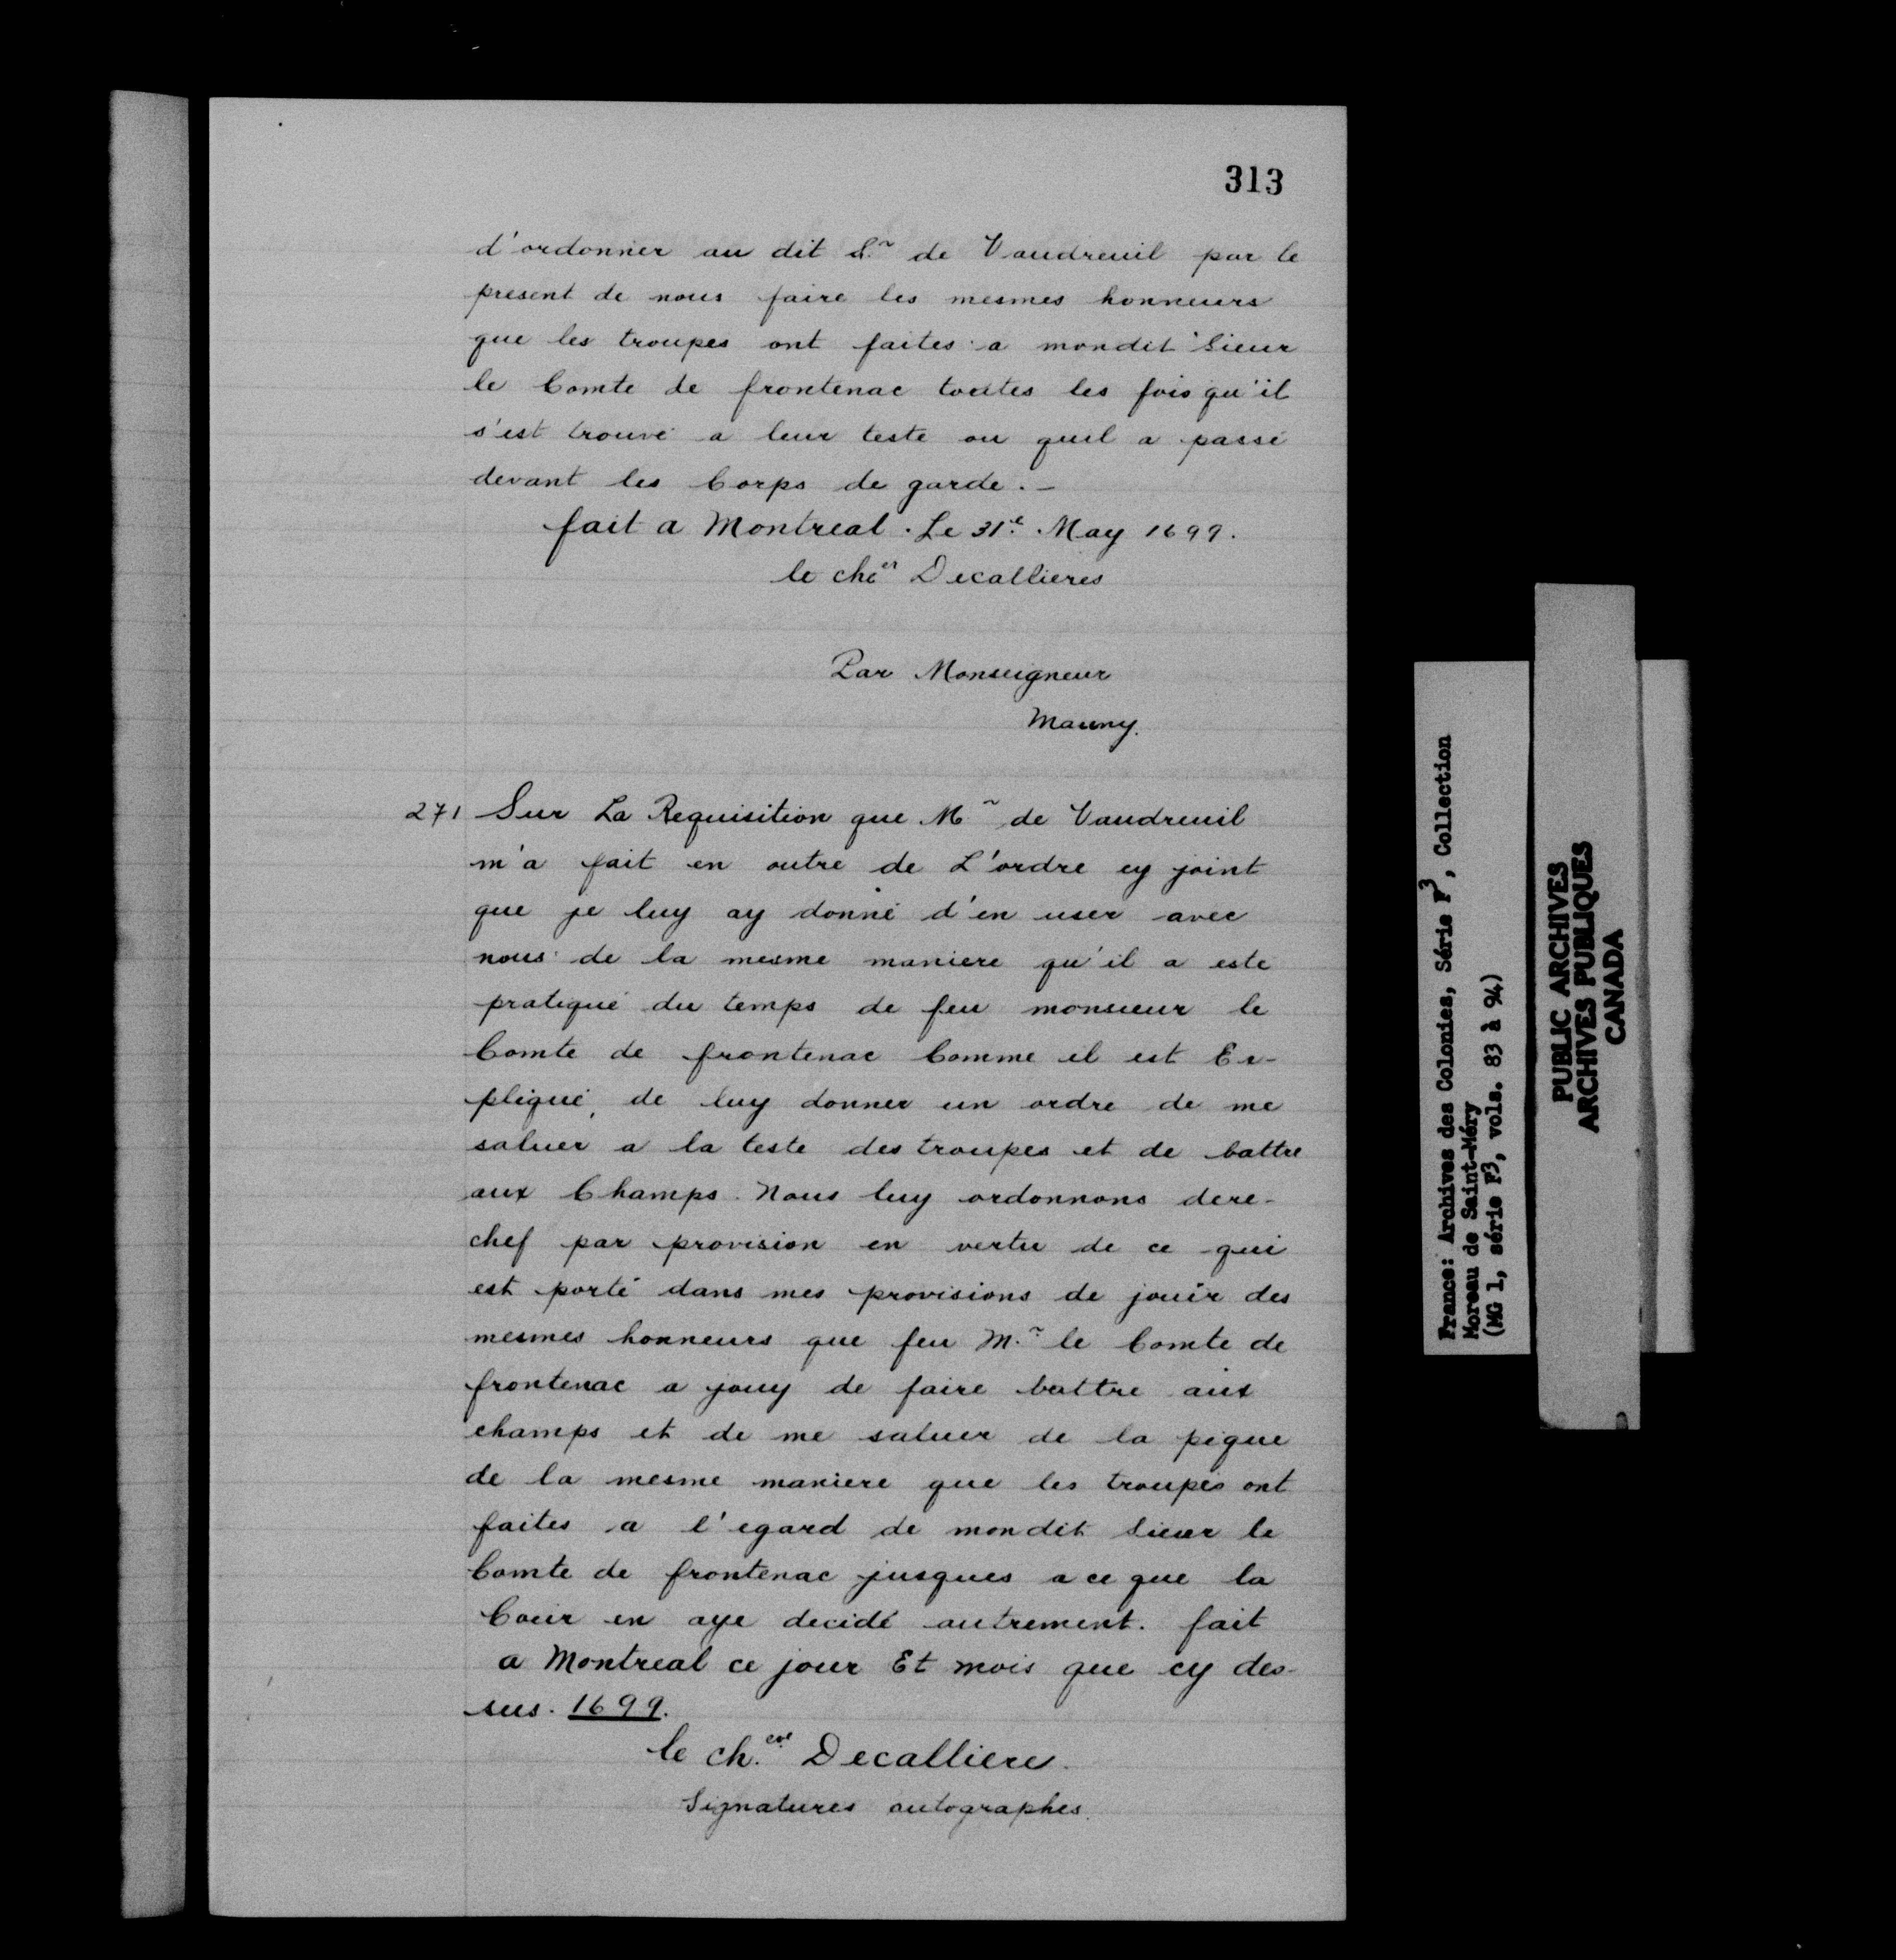 313
d'ordonner au dit S.r de Vaudreuil par le
present de nous faire les mesmes honneurs
que les troupes ont faites a mondit Sieur
le Comte de frontenac toutes les fois qu'il
s'est trouvé a leur teste ou quil a passé
devant les Corps de garde. –
fait a Montreal. Le 31.e May 1699.
le cher Decallieres
Par Monseigneur
Mauny.
271 Sur La Requisition que Mr de Vaudreuil
m'a fait en outre de L'ordre cy joint
que je luy ay donné d'en user avec
nous de la mesme maniere qu'il a esté
pratiqué du temps de feu monsieur le
Comte de frontenac Comme il est Ex-
pliqué, de luy donner un ordre de me
saluer a la teste des troupes et de battre
aux Champs. Nous luy ordonnons dere-
chef par provision en vertu de ce qui
est porté dans mes provisions de jouir des
mesmes honneurs que feu M.r le Comte de
frontenac a jouy de faire battre aux
champs et de me saluer de la pique
de la mesme maniere que les troupes ont
faites a l'egard de mondit Sieur le
Comte de frontenac jusques a ce que la
Cour en aye decidé autrement. fait
a Montreal ce jour Et mois que cy des-
sus. 1699.
le ch.er Decalliere
Signatures autographes.
France: Archives des Colonies, Série F3, Collection
Moreau de Saint-Méry
(MG 1, série F3, vols. 83 à 94)
PUBLIC ARCHIVES
ARCHIVES PUBLIQUES
CANADA